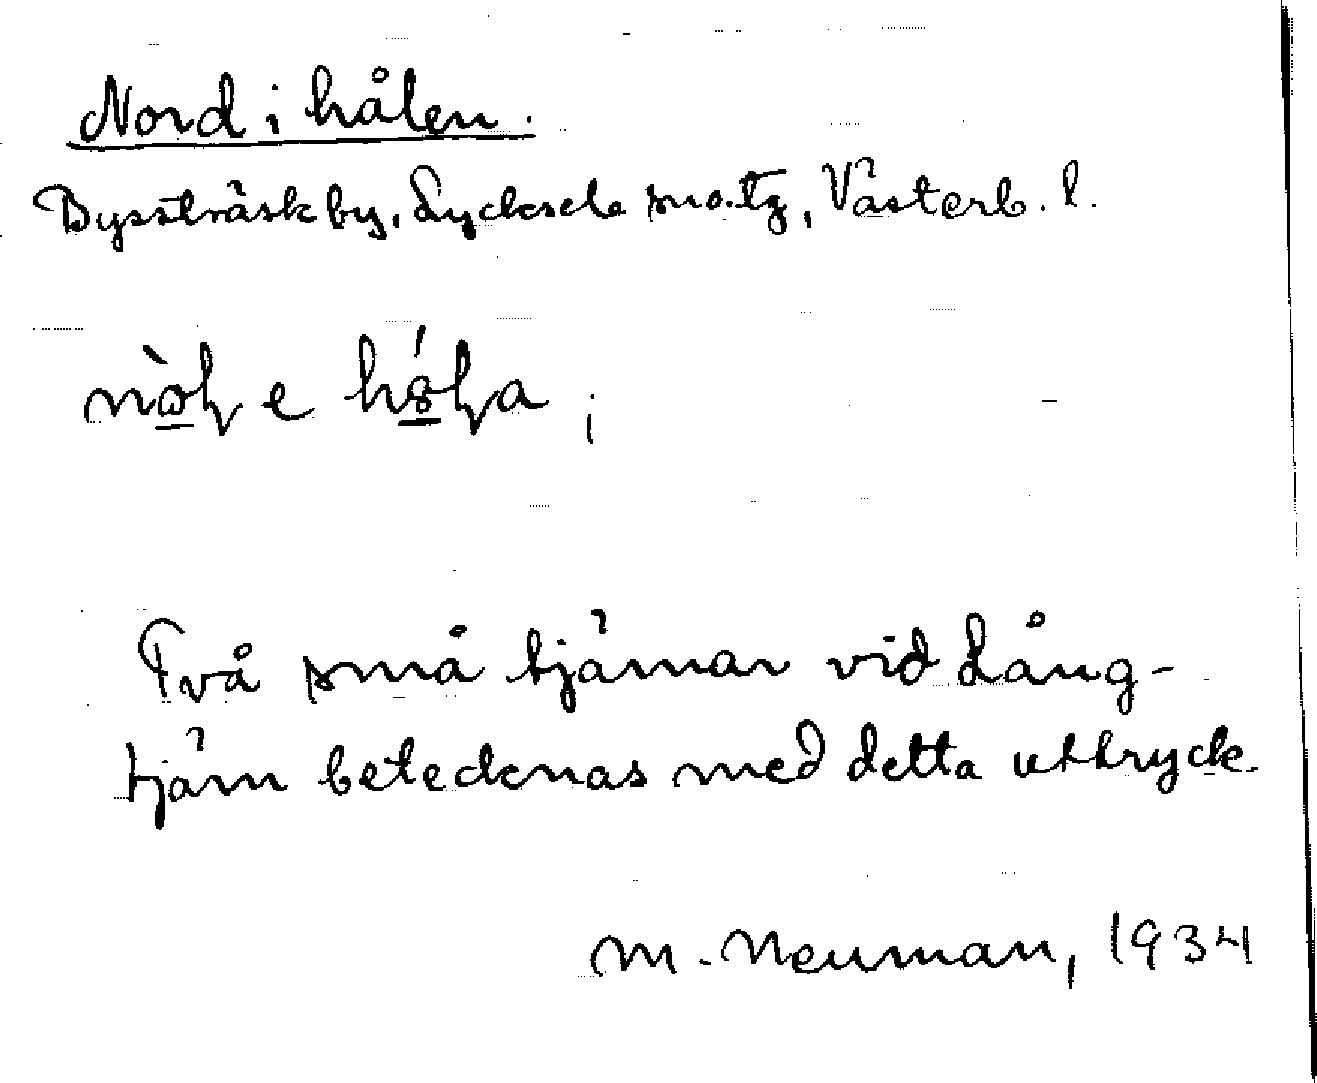 Nord i hålen.
Bysstråsk by, Lycksele sn o. tg, Västerb. l.
e
Två små tjärnar vid Lång-
tjärn betecknas med detta uttryck.
M. Neuman, 1934